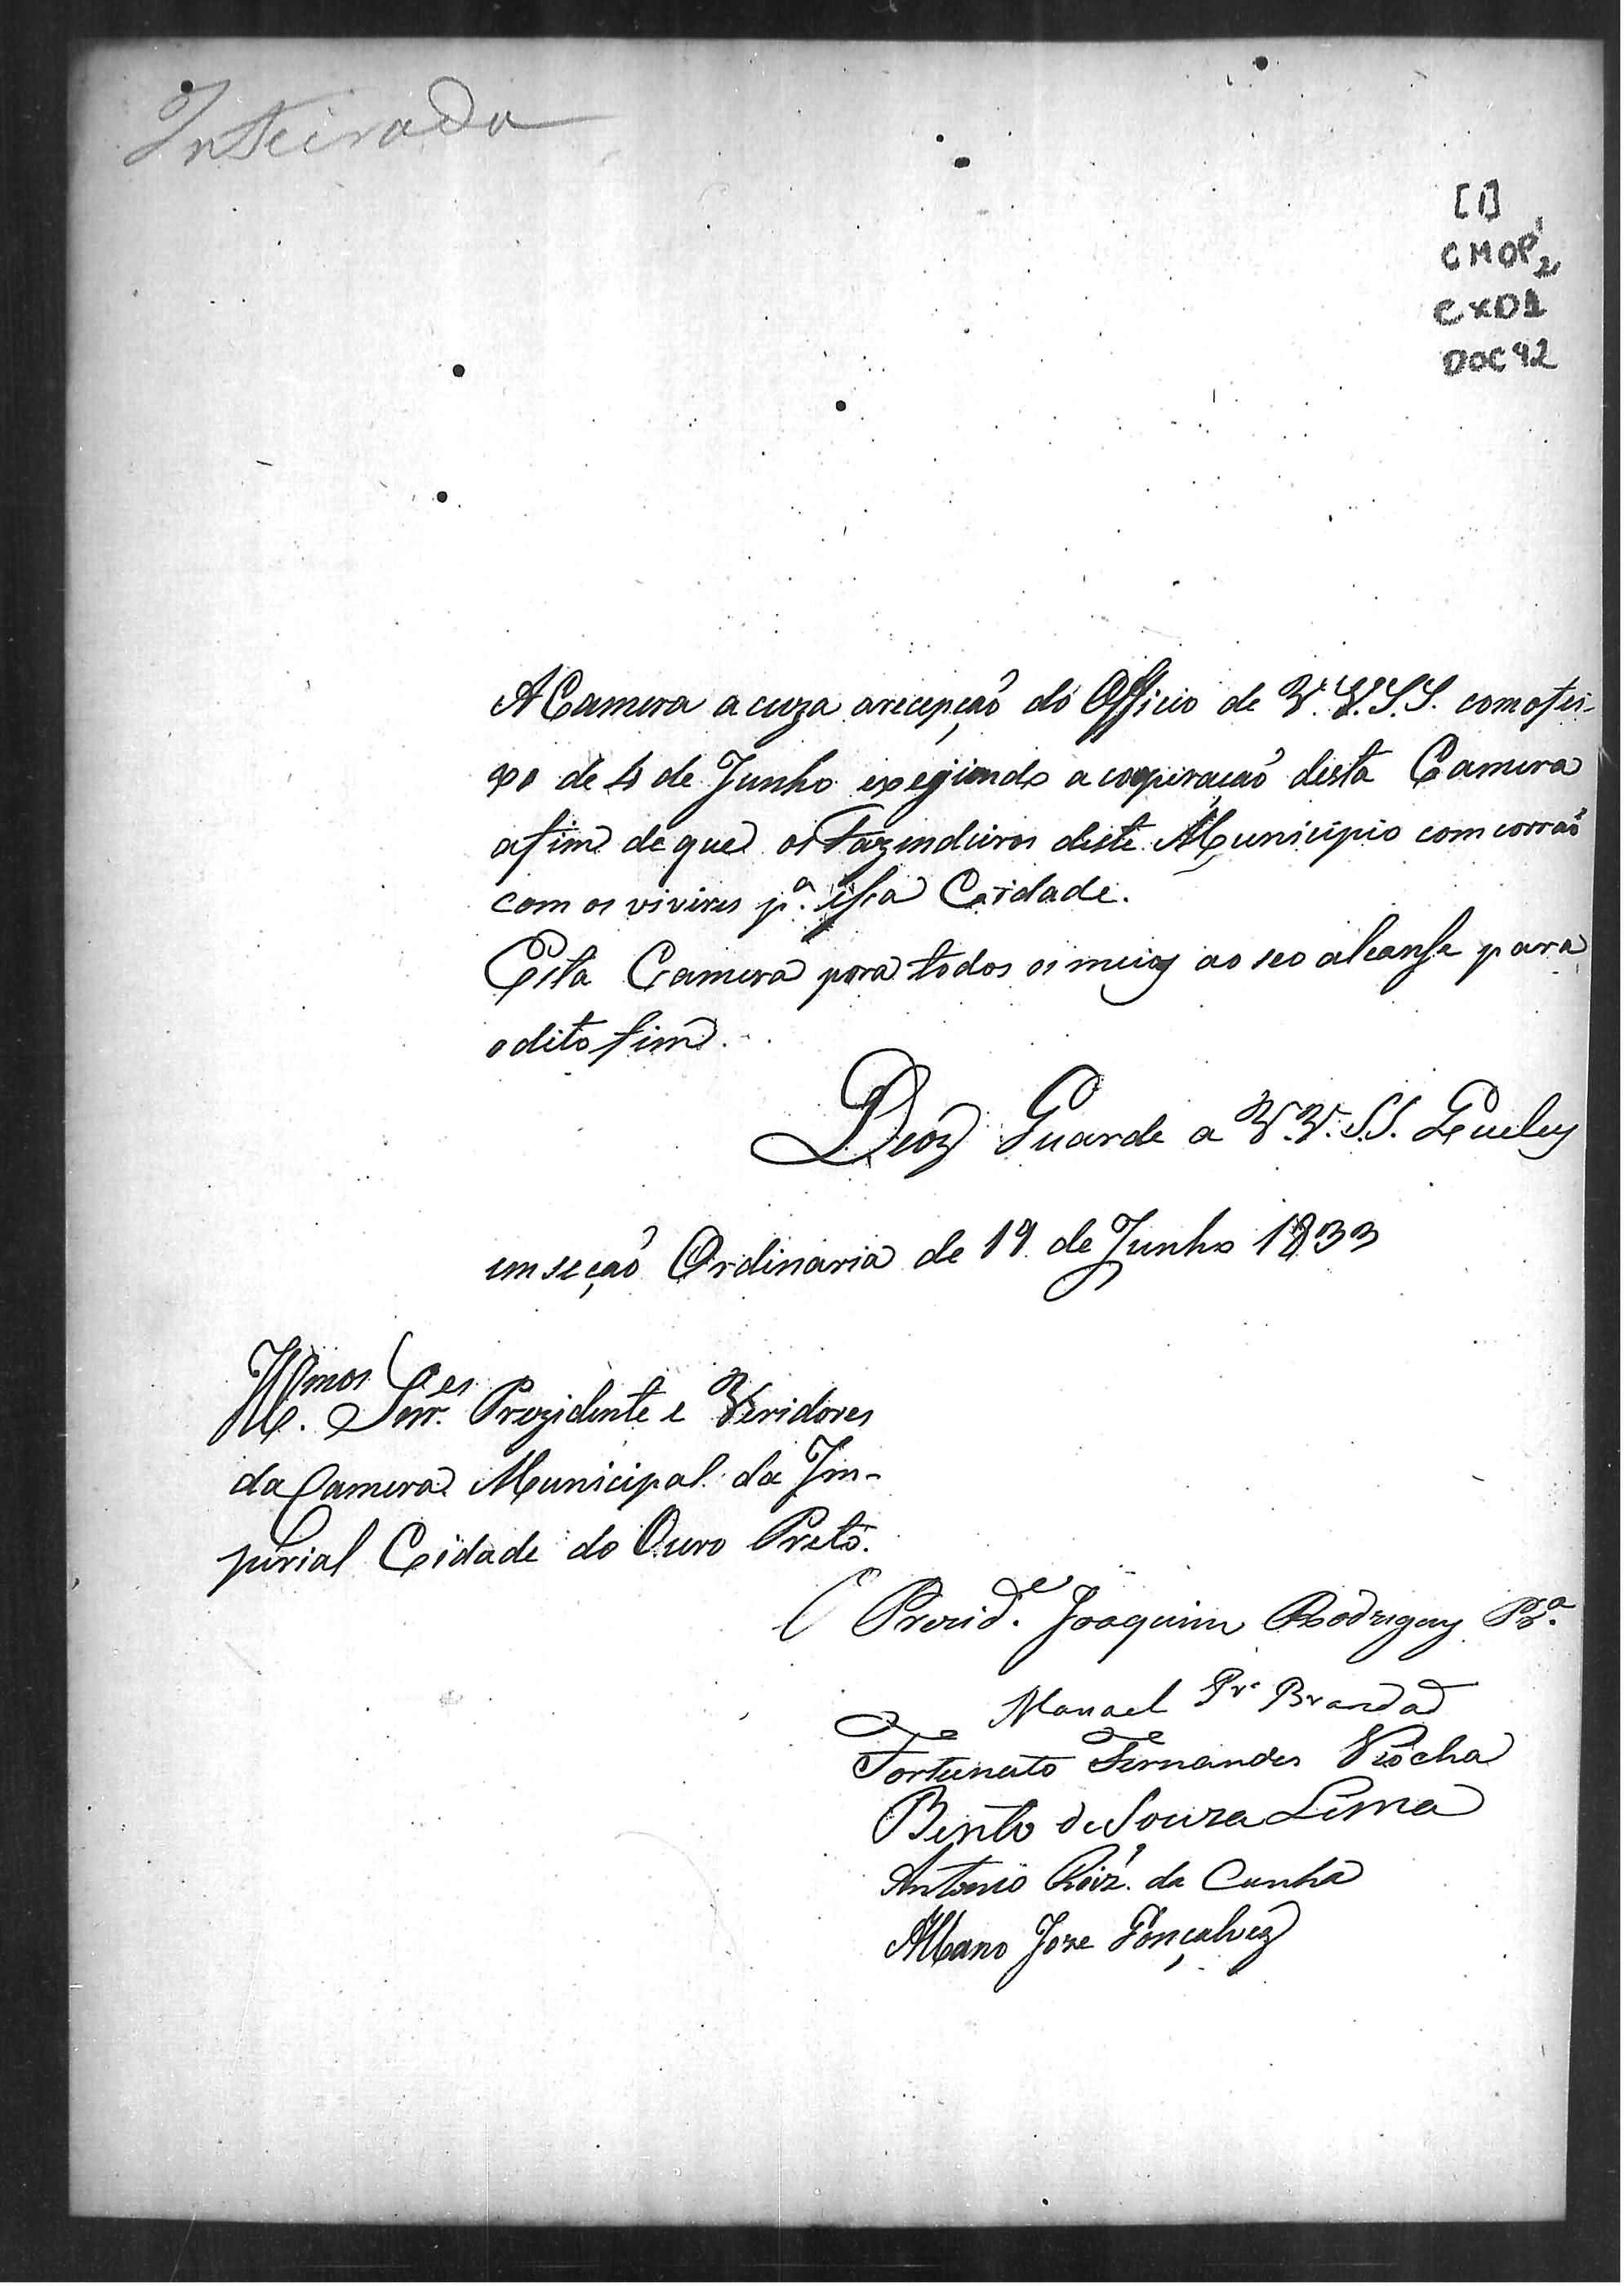 Inteirada
[1]
CMOP 2
CX01
DOC 42
A Camera acuza arecepção do Officio de V.V.S.S. comofei-
xo de 4 de Junho exegindo a coopiração desta Camera
afim deque os Fazendeiros deste Municipio comcorrão
com os viveres p.ª essa Cidade.
Esta Camera pora todos os meios ao seo alcanse para
odito fim.
Deos Guarde a V.V.S.S. Queluz
em seção Ordinaria de 19 de Junho 1833
Illmos Senr.es Prezidente e Veridores
da Camera Municipal da Im-
perial Cidade do Ouro Preto.
Prezid.e Joaquim Rodrigues Pr.ª
Manoel Pr.ª Brandaõ
Fortunato Fernandes Rocha
Bento de Souza Lima
Antonio Roiz. da Cunha
Albano Joze Gonçalvez